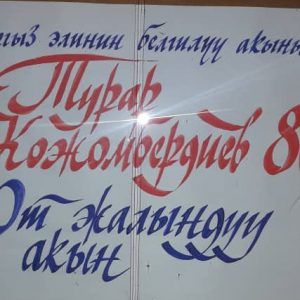 гыз элинин белгилүү акыны
Турар
Кожомбердиев 8
От жалындуу
акын